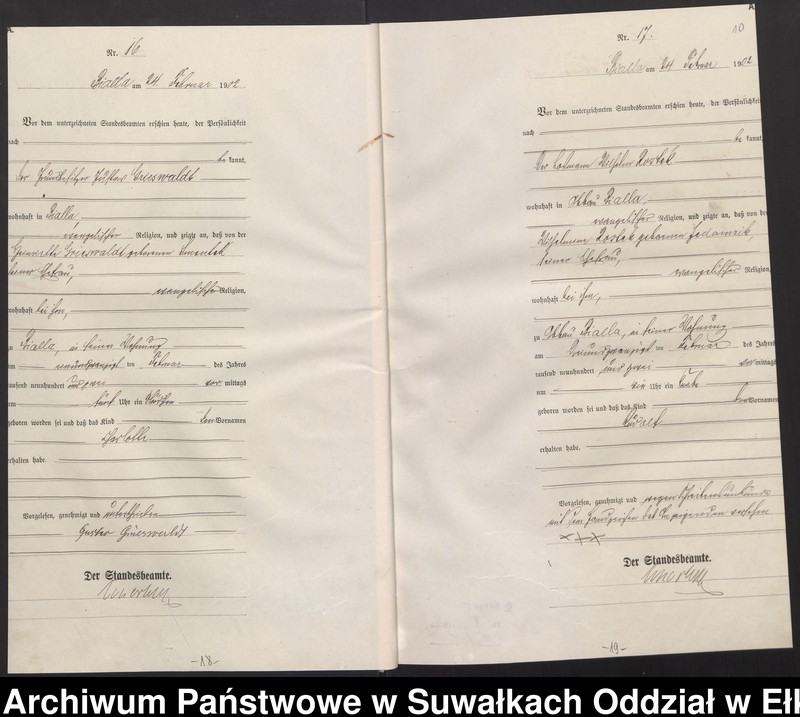 Nr. 16
Bialla am 24. Februar 1902
Vor dem unterzeichneten Standesbeamten erschien heute, der Persönlichkeit
nach
be kannt,
der Grundbesitzer Gustav Grieswaldt
wohnhaft in Bialla
evangelischer Religion, und zeigte an, daß von der
Grieswaldt geborenen
seiner Ehefrau,
evangelischer Religion,
wohnhaft bei ihm,
Bialla, in seiner Wohnung
Februar des Jahres
tausend neunhundert und zwei vor mittags
um fünf Uhr ein Mädchen
geboren worden sei und daß das Kind den Vornamen
Charlotte
erhalten habe.
Vorgelesen, genehmigt und unterschrieben
Gustav Grieswaldt
Der Standesbeamte.
-18-
10
Nr. 17.
Bialla am 24 Februar 1902
Vor dem unterzeichneten Standesbeamten erschien heute, der Persönlichkeit
nach
be kannt,
Der Losmann Wilhelm Rostek
wohnhaft in Abbau Bialla
evangelischer Religion, und zeigte an, daß von der
Wilhelmine Rostek geborenen
seiner Ehefrau,
evangelischer Religion,
wohnhaft bei ihm,
zu Abbau Bialla, in seiner Wohnung
am Februar des Jahres
tausend neunhundert und zwei vor mittags
um Uhr ein Knabe
geboren worden sei und daß das Kind den Vornamen
erhalten habe.
Vorgelesen, genehmigt und wegen Schreibensunkunde
mit dem Handzeichen des Anzeigenden versehen
+++
Der Standesbeamte.
-19-
Archiwum Państwowe w Suwałkach Oddział w Eł